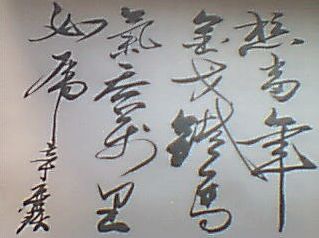 想當年
金戈鐵馬
氣吞万里
如虎